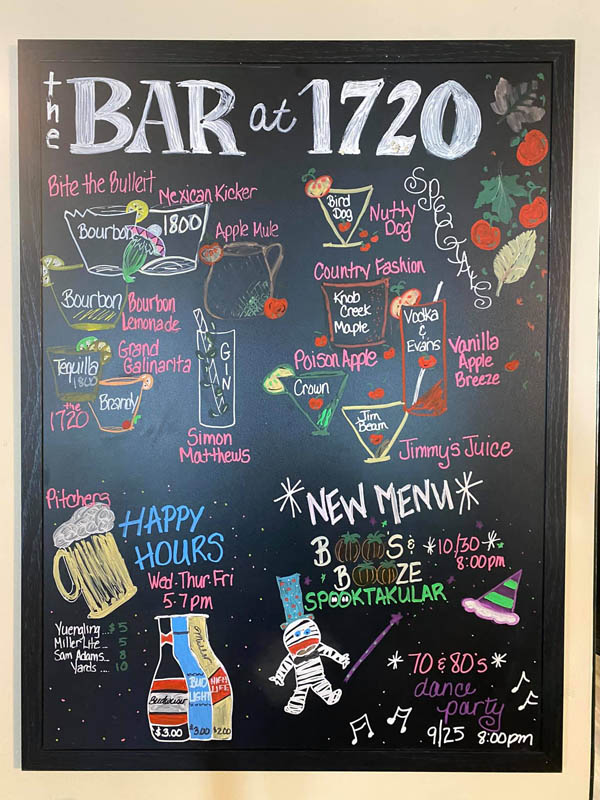 the BAR at 1720
Bite the Bulleit
Bourbon
Mexican Kicker
1800
Apple Mule
Bourbon
Bourbon
Lemonade
Tequilla
1800
Grand
Galinarita
the
1720
Brandy
GIN
Simon
Matthews
SPECTALES
Bird
Dog
Nutty
Dog
Country Fashion
Knob
Creek
Maple
Vodka
&
Evans
Vanilla
Apple
Breeze
Poison Apple
Crown
Jim
Beam
Jimmy's Juice
Pitchers
HAPPY
HOURS
Wed-Thur-Fri
5-7pm
Yuengling... $5
Miller Lite... 5
Sam Adams... 8
Yards.... 10
Budweiser
$3.00
BUD
LIGHT
$3.00
Miller
HIGH
LIFE
$2.00
*NEW MENU*
BOO'S &
BOOZE
SPOOKTAKULAR
*10/30*
8:00pm
*70 & 80's*
dance
party
9/25 8:00pm